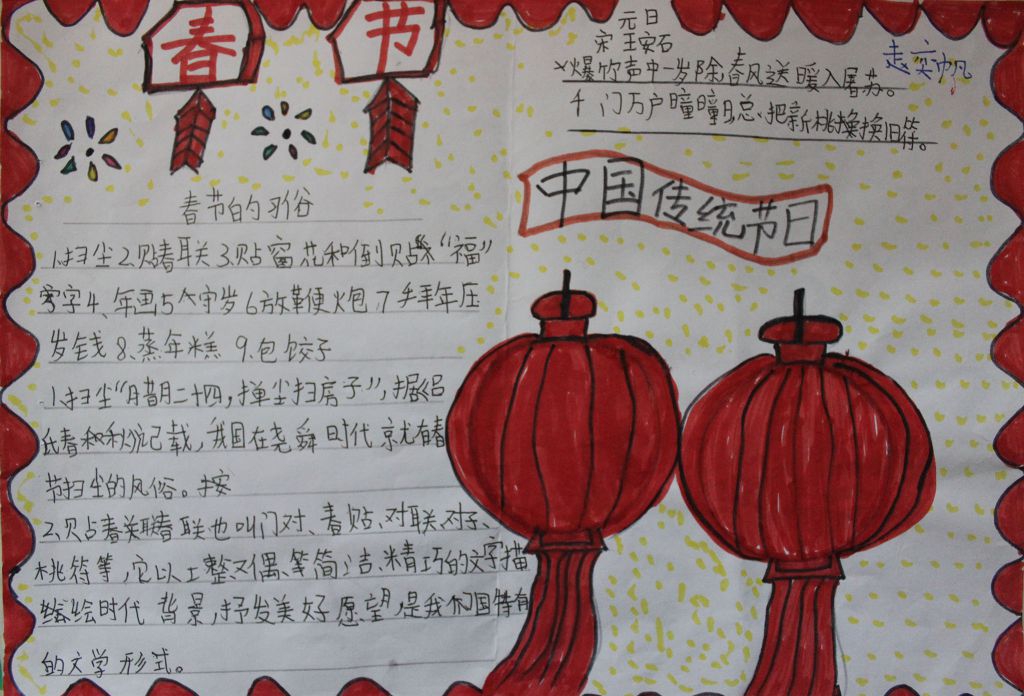 春节
元日
宋 王安石
爆竹声中一岁除,春风送暖入屠苏。
千门万户曈曈日总把新桃换旧符。
中国传统节日
春节的习俗
1.扫尘2.贴春联3.贴窗花和倒贴“福”
字4、年画5个守岁6放鞭炮7手拜年压
岁钱8、蒸年糕 9.包饺子
1.扫尘“腊月二十四,掸尘扫房子”,据《吕
氏春秋》记载,我国在尧舜时代就有春
节扫尘的风俗。按
2.贴春联春联也叫门对、春贴、对联、对子、
桃符等,它以工整对偶、简洁、精巧的文字描
绘时代背景,抒发美好愿望,是我们国特有
的文学形式。